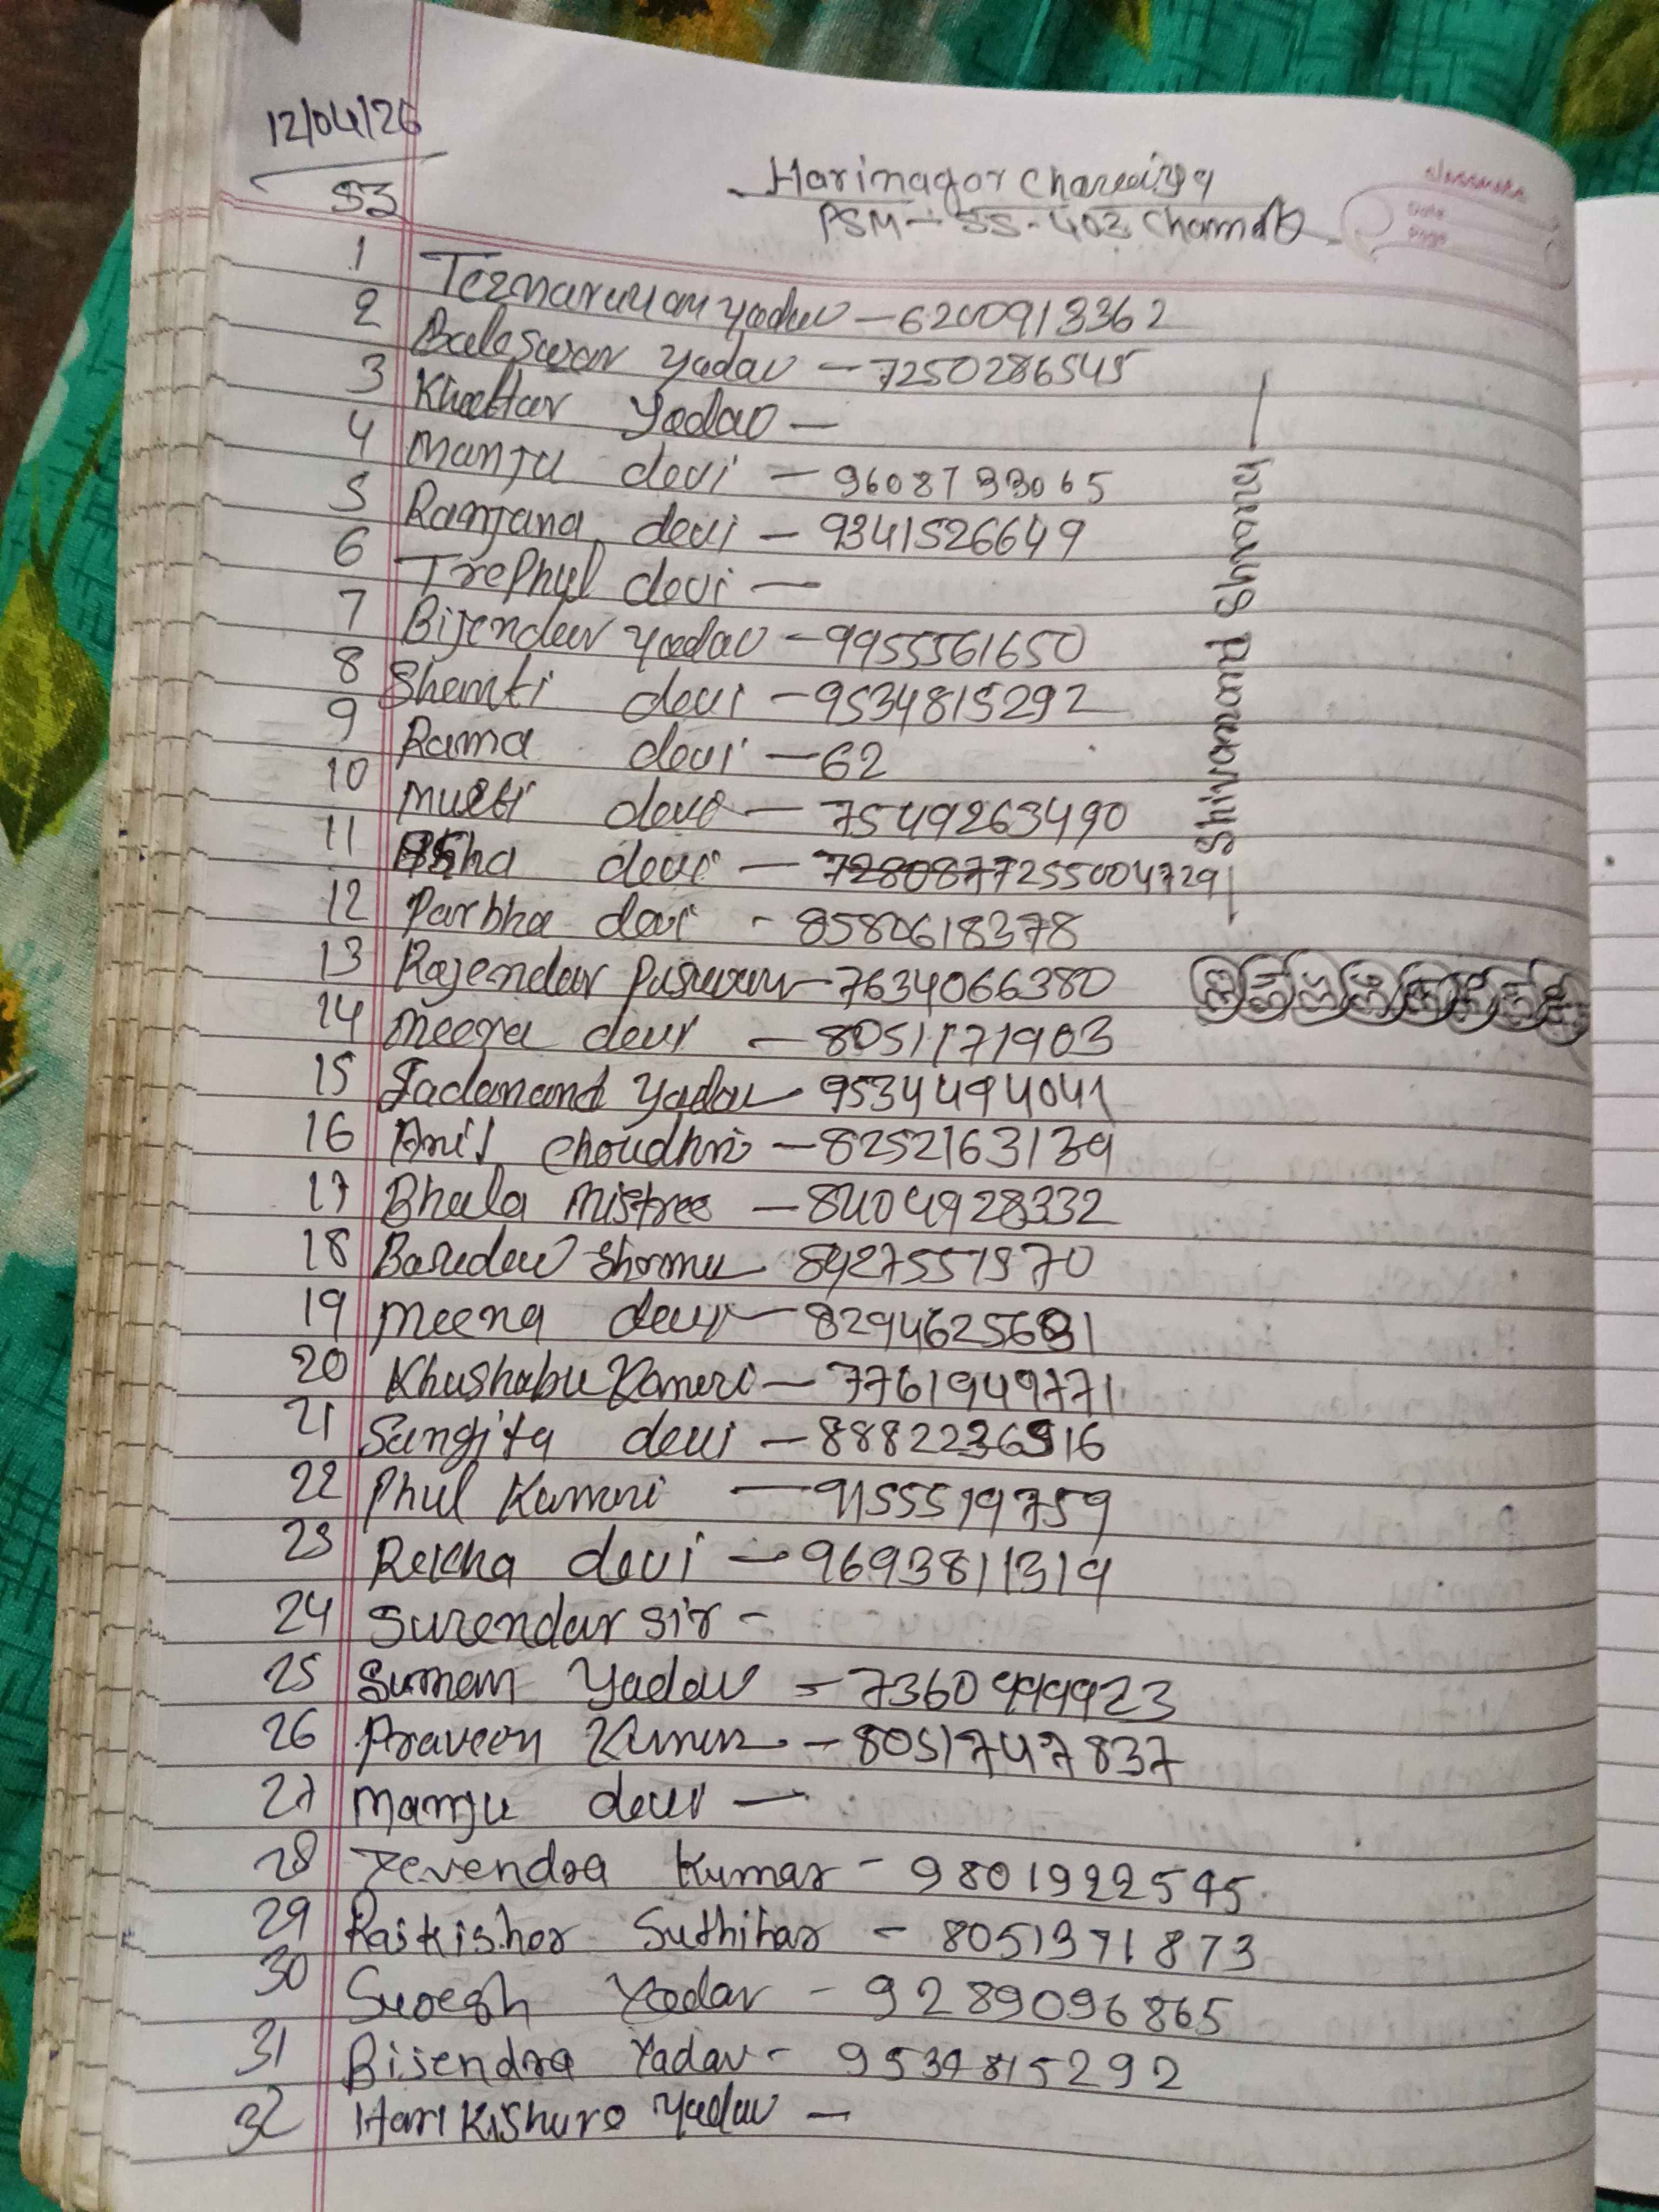 12/04/26
53
Harinagar
PSM - SS-403
classmate
Date
Page
1 Teznarayan Yadav - 6200913362
2 Baleswar Yadav - 7250286545
3 Khattar Yadav -
4 Manju devi - 9608733065
5 Ranjana devi - 9341526649
6 TrePhul devi -
7 Bijendar Yadav - 9955561650
8 Shanti devi - 9534815292
9 Rama devi - 62
10 devi - 7549263490
11 Asha devi - 7255004729
12 Parbha devi - 8580618378
13 Rajendar Paswan - 7634066380
14 Meera devi - 8051171903
15 Yadav - 9534494041
16 Anil Choudhri - 8252163139
17 Bhala Mistree - 8404928332
18 Basudev Sharma 8427551970
19 Meena devi - 8294625681
20 Khushabu Kumari - 7761949771
21 Sangita devi - 8882236916
22 Phul Kumari - 9155519759
23 Rekha devi - 9693811319
24 Surendar Sir -
25 Suman Yadav - 7360999923
26 Praveen Kumar - 8051747837
27 Manju devi -
28 Kumar - 9801922545
29 Rajkishor Suthihar - 8051371873
30 Suresh Yadav - 9289096865
31 Bijendra Yadav - 9534815292
32 Hari Kishuro Yadav -
Shivanand Sharma